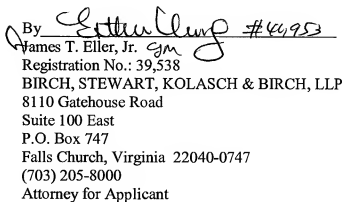 By Esther Chong #40,953
James T. Eller, Jr.
Registration No.: 39,538
BIRCH, STEWART, KOLASCH & BIRCH, LLP
8110 Gatehouse Road
Suite 100 East
P.O. Box 747
Falls Church, Virginia 22040-0747
(703) 205-8000
Attorney for Applicant